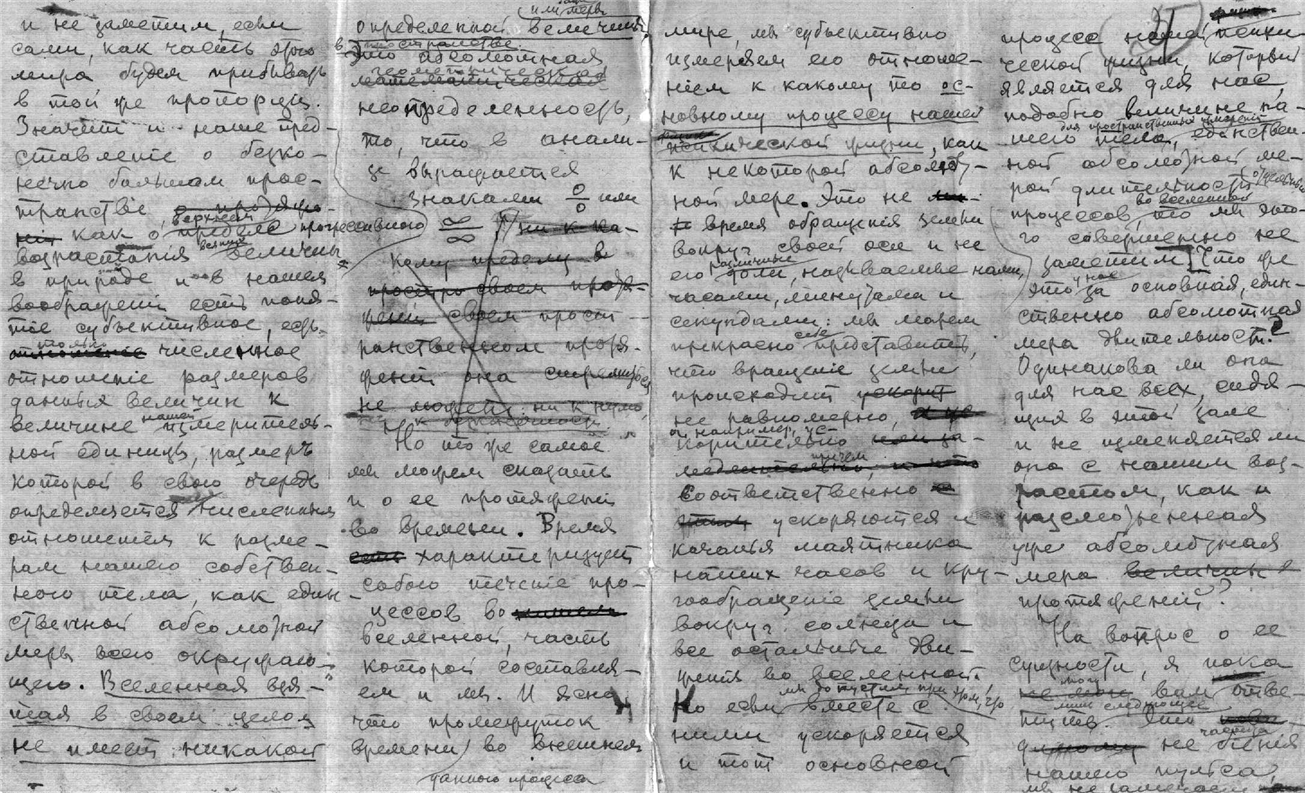 и не заметим, если
сами, как часть этого
мира будем прибывать
в той же пропорции.
Значит и наше пред-
ставленіе о безко-
нечно большом прос-
транстве,
верхнем
как о пределе прогрессивного
возрастанія величины
всякия
в природе и в нашем
воображеніи есть поня-
тіе субъективное, есть
только
отношеніе численное
отношеніе размеров
данныя величин к
нашей
величине измеритель-
ной единицы, размеръ
которой в свою очередь
определяется численным
отношеніем к разме-
рам нашего собствен-
ного тела, как един-
ственной абсолютной
меры всего окружаю-
щего. Вселенная взя-
тая в своем целом
не имеет никакой
или меры
определенной величины
в пространстве.
Это абсолютная
геометрическая
математическая
неопределенность,
то, что в анали-
зе выражается
знаками 0/0 или
∞/∞ ни к ка-
кому пределу в
простран своем протя-
жении своем прост-
ранственном протя-
жении она стремиться
не может: ни к нулю,
ни к бесконечности.
Но то же самое
мы можем сказать
и о ее протяжении
во времени. Время
есть характеризует
собою теченіе про-
цессов во
вселенной, часть
которой составля-
ем и мы. И ясно
что промежуток
времени во внешнем
данного процесса
мире, мы субъективно
измеряем его отноше-
ніем к какому то ос-
новному процессу нашей
психической жизни, как
к некоторой абсолют-
ной мере. Это не
время обращенія земли
вокруг своей оси и не
различные
его доли, называемые нами
часами, минутами и
секундами: мы можем
себе
прекрасно представить,
что вращеніе земли
происходит ускорит
не равномерно,
а например, ус-
корительно или за-
причем
медлительно, и что
соответственно
ускоряются и
качанья маятника
наших часов и кру-
гообращеніе земли
вокруг солнца и
все остальные дви-
женія во вселенной.
мы допустим при этом, что
Но если вместе с
ними ускоряется
и тот основной
процесс нашей психи-
ческой жизни, который
является для нас,
подобно величине на-
для пространственных измерений
шего тела, единствен-
ной абсолютной ме-
рой длительности
процессов, то мы это-
во вселенной
го совершенно не
заметим. Что же
у нас
это за основная, един-
ственно абсолютная
мера длительности?
Одинакова ли она
для нас всех, сидя-
щия в этой зале
и не изменяется ли
она с нашим воз-
растом, как и
разсмотренная
уже абсолютная
мера величины
протяжений?
На вопрос о ее
сущности, я пока
могу
не могу вам отве-
лишь следующее
тить. Это
частица
не биения
нашего пульса,
мы не замечаем